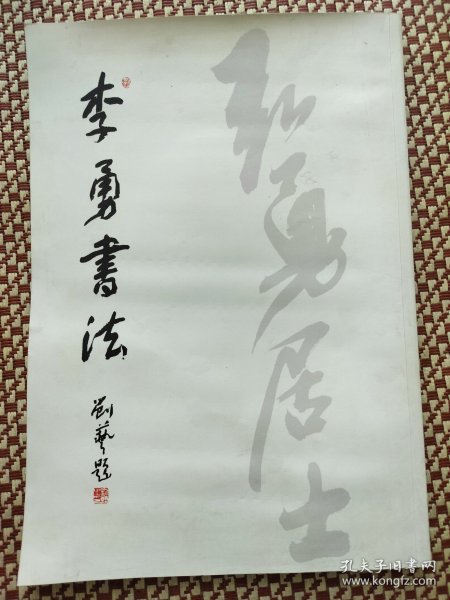 李勇書法
劉藝題
弘勇居士
孔夫子旧书网
www.kongfz.com